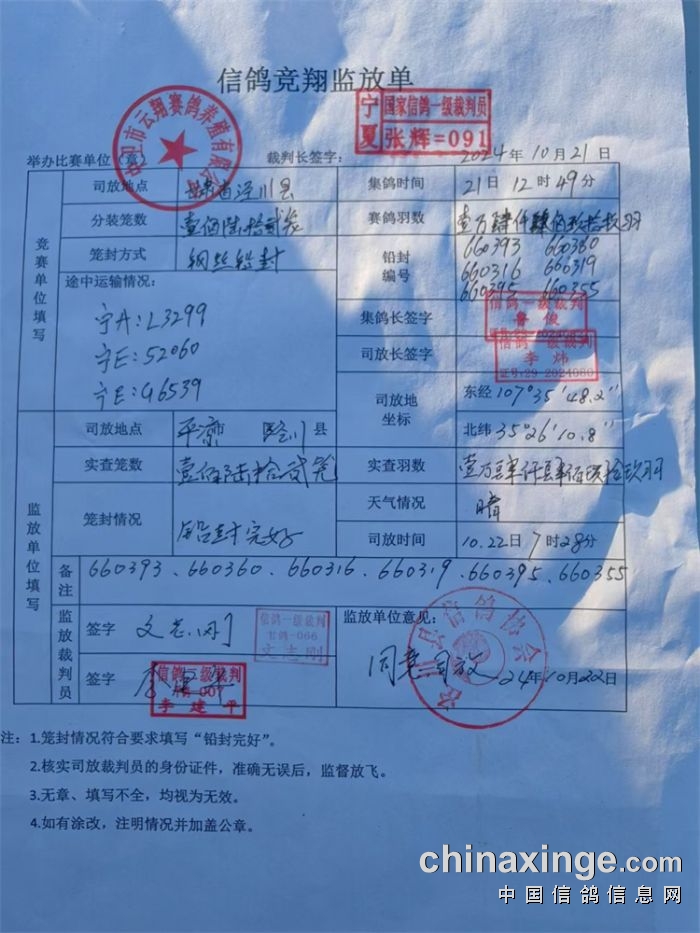 信鸽竞翔监放单
中卫市云翔赛鸽养殖有限公司
宁夏 国家信鸽一级裁判员
张辉=091
举办比赛单位（章） 裁判长签字： 2024年10月21日
竞赛单位填写
司放地点 甘肃省泾川县 集鸽时间 21日12时49分
分装笼数 壹佰陆拾贰笼 赛鸽羽数 壹万肆仟肆佰玖拾玖羽
笼封方式 钢丝铅封 铅封编号 660393 660360
660316 660319
660395 660355
途中运输情况：
宁A：L3299
宁E：52060
宁E：G6539
集鸽长签字 信鸽一级裁判
鲁俊
司放长签字 信鸽一级裁判
李炜
证号:29 2024080
司放地坐标 东经 107°35′48.2″
北纬 35°26′10.8″
监放单位填写
司放地点 平凉 泾川县
实查笼数 壹佰陆拾贰笼 实查羽数 壹万肆仟肆佰玖拾玖羽
笼封情况 铅封完好 天气情况 晴
司放时间 10.22日7时28分
备注 660393、660360、660316、660319、660395、660355
监放裁判员
签字 文志刚 信鸽一级裁判
甘鸽-066
文志刚
签字 信鸽二级裁判
007
李建平
监放单位意见：
泾川县信鸽协会
同意司放 24年10月22日
注：1.笼封情况符合要求填写“铅封完好”。
2.核实司放裁判员的身份证件，准确无误后，监督放飞。
3.无章、填写不全，均视为无效。
4.如有涂改，注明情况并加盖公章。
chinaxinge.com
中国信鸽信息网